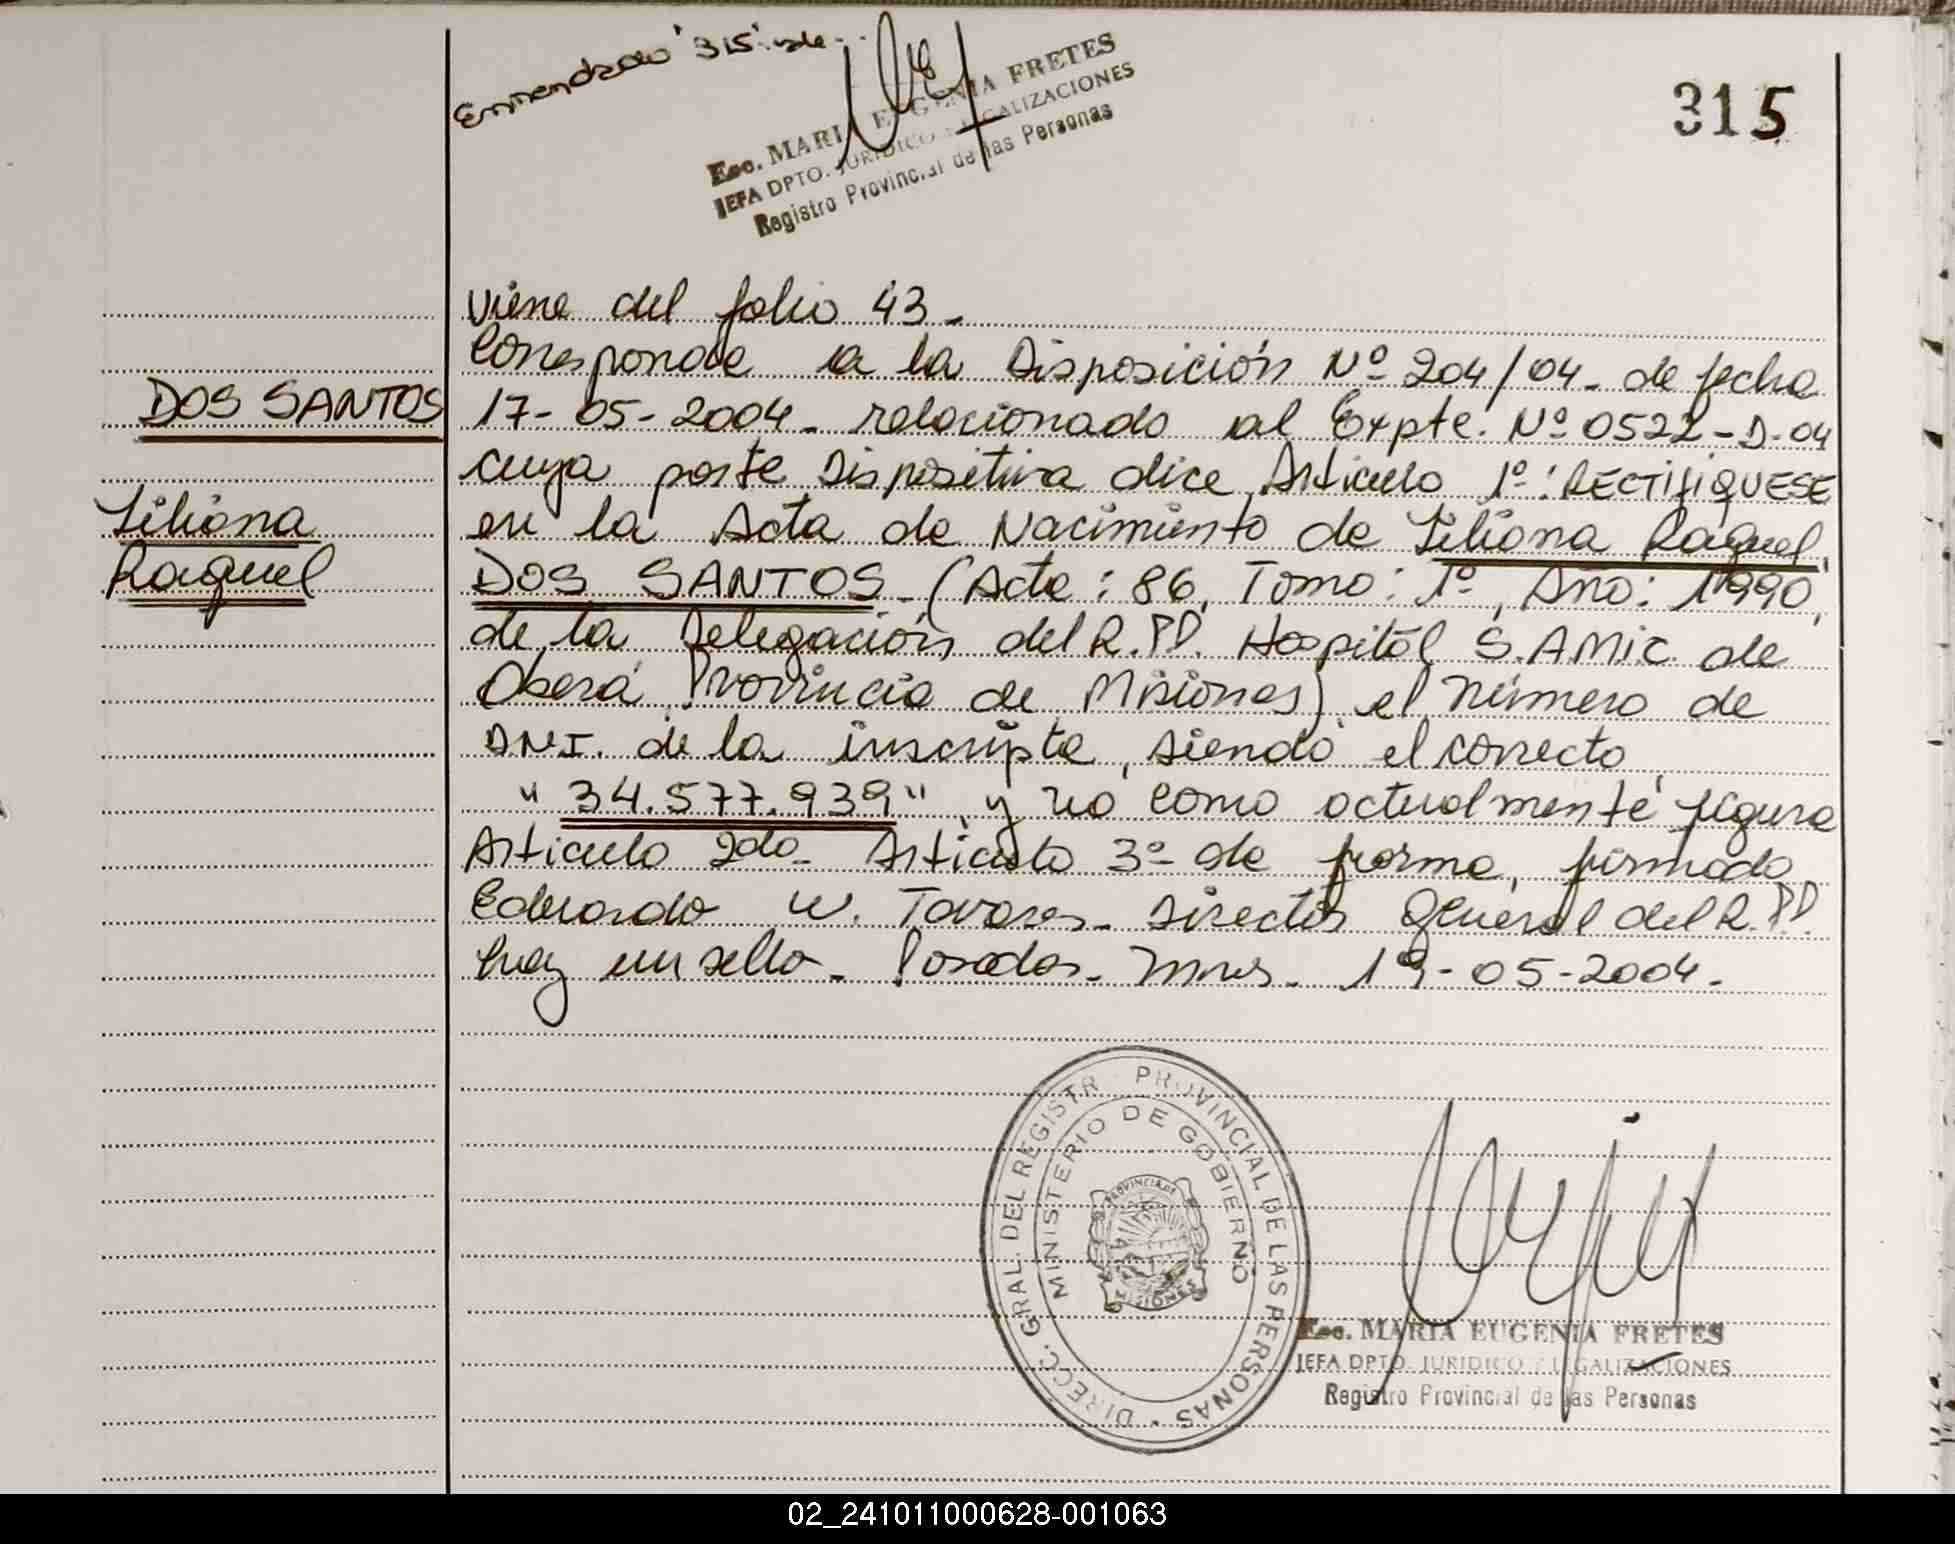 Enmendado "315" vale..
Esc. MARIA EUGENIA FRETES
JEFA DPTO. JURIDICO Y LEGALIZACIONES
Registro Provincial de las Personas
315
Viene del folio 43-
Corresponde a la Disposición Nº 204/04- de fecha
DOS SANTOS
17-05-2004- relacionado al Expte. Nº 0522-D-04
cuya parte Dispositiva dice, Articulo 1º: RECTIFIQUESE
Liliana
en la Acta de Nacimiento de Liliana Raquel
Raquel
DOS SANTOS- (Acta: 86, Tomo: 1º, Año: 1990,
de la Delegación del R.P.P. Hospital S.AMIC. de
Oberá, Provincia de Misiones), el número de
DNI. de la inscripta, siendo el correcto
"34.577.939" y no como actualmente figura
Articulo 2do- Articulo 3º- de forma, firmado
Eduardo W. Tavares- Director General del R.P.P.
hay un sello- Posadas- Mnes- 19-05-2004-
DIRECC. GRAL. DEL REGISTR PROVINCIAL DE LAS PERSONAS
MINISTERIO DE GOBIERNO
PROVINCIA DE
MISIONES
Esc. MARIA EUGENIA FRETES
JEFA DPTO. JURIDICO Y LEGALIZACIONES
Registro Provincial de las Personas
02_241011000628-001063